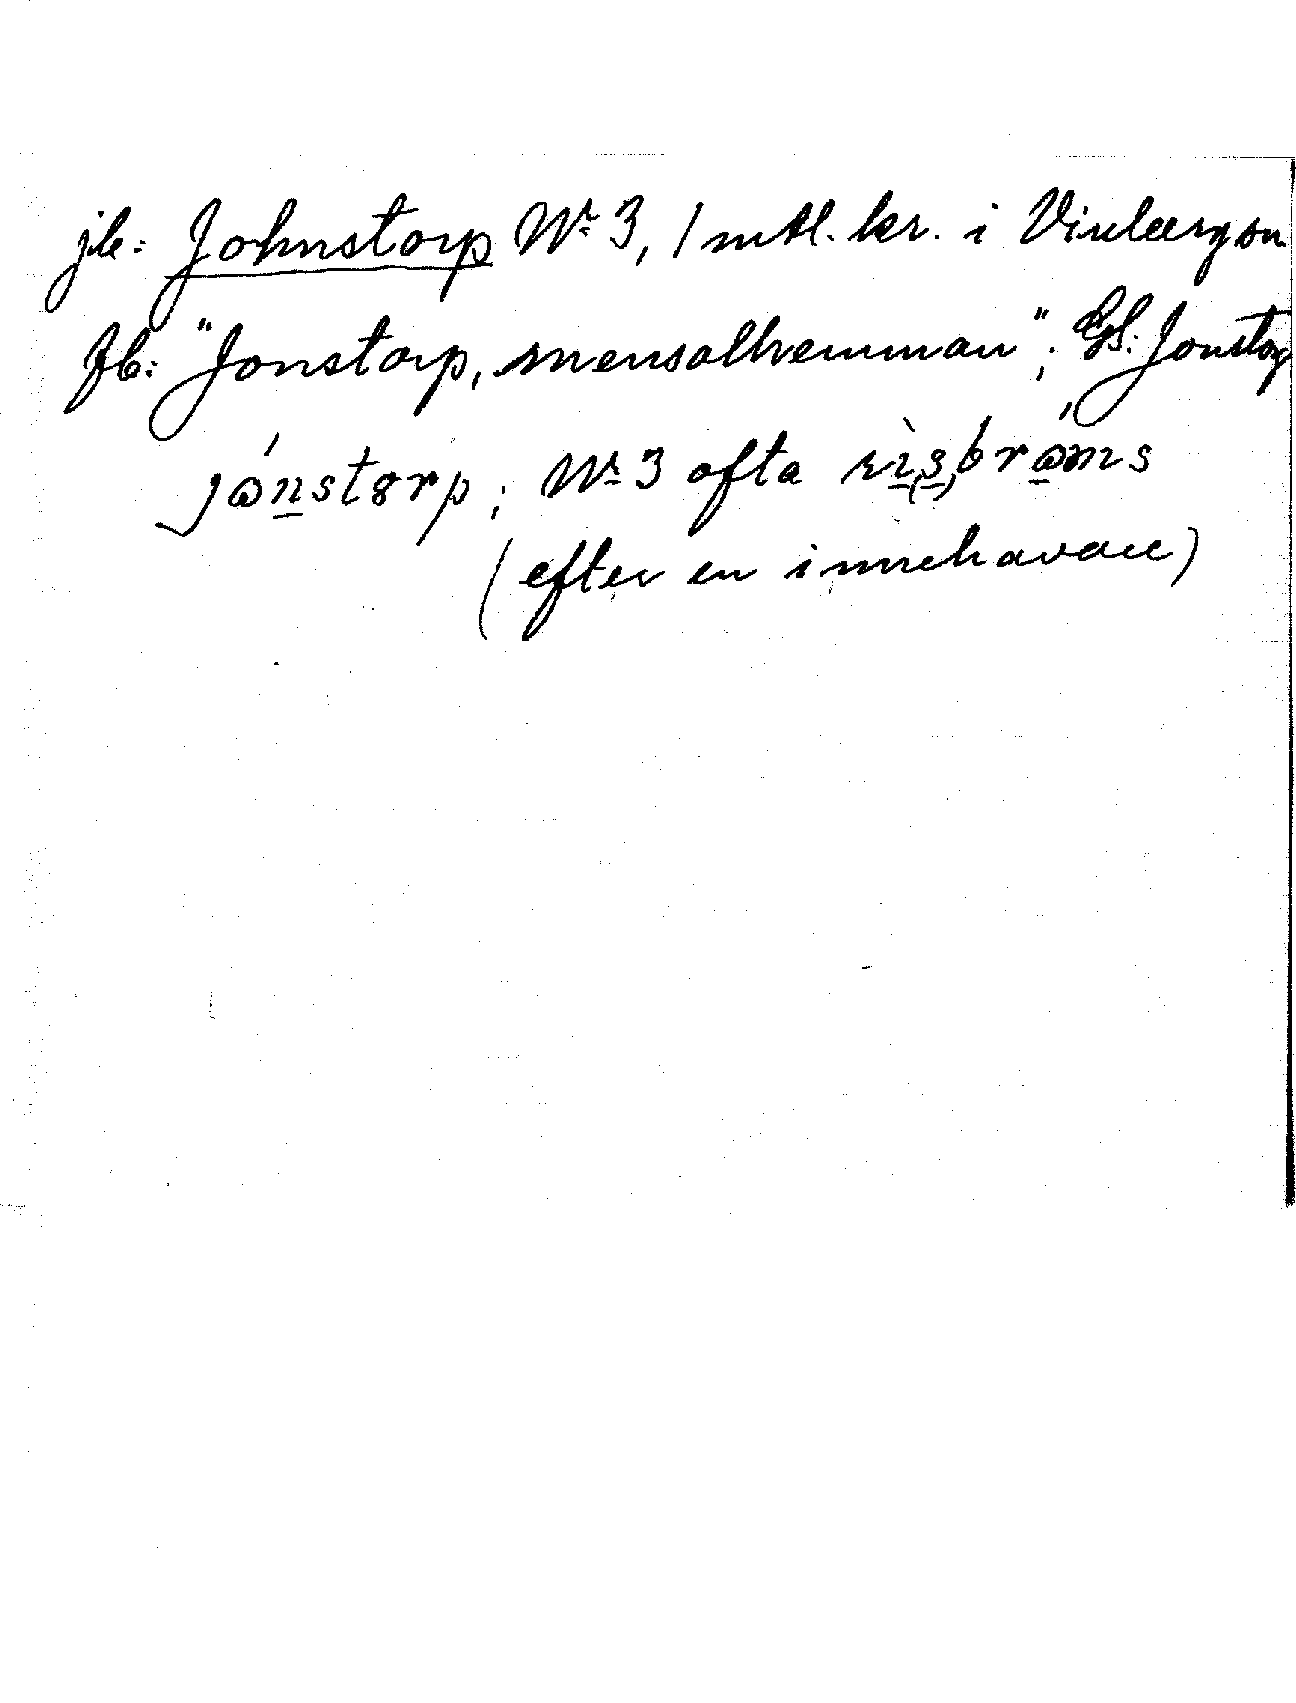 jb: Johnstorp Nr 3, 1 mtl. kr. i Vinbergs sn
Jb: "Jonstorp, mensalhemman"; GS: Jonstorp
jónstɵrp; Nr 3 ofta
(efter en innehavare)